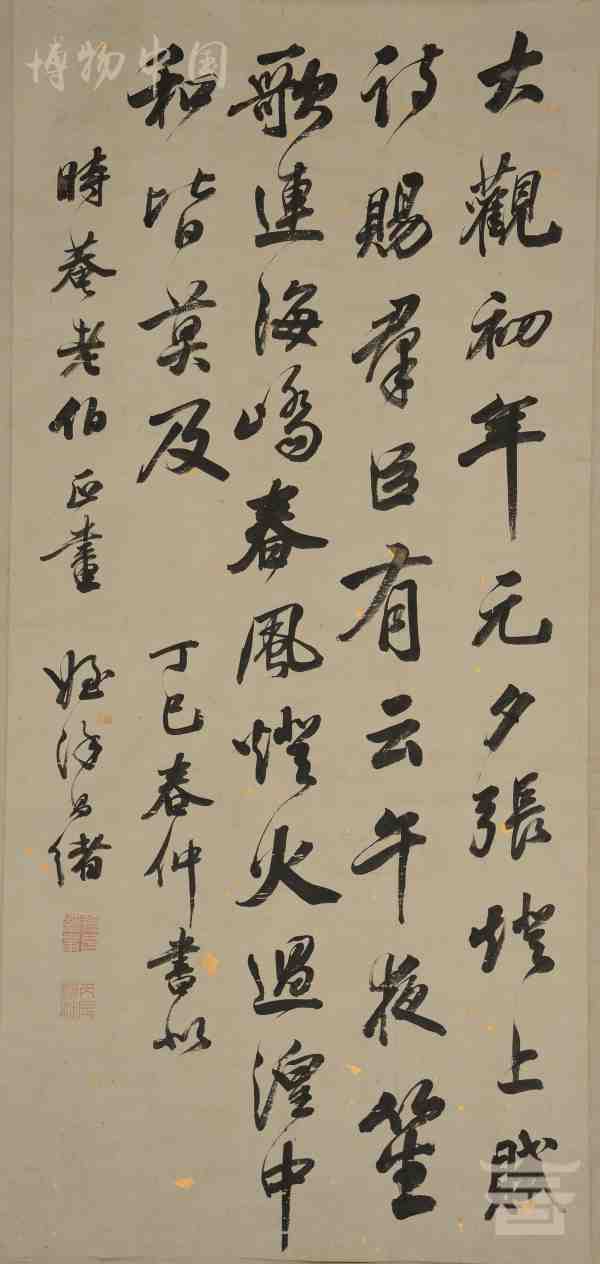 博物中国
大觀初年元夕張燈上賦
詩賜羣臣有云午夜笙
歌連海嶠春風燈火過湟中
和皆莫及 丁巳春仲書似
時菴老伯正畫 姪徐昌緒